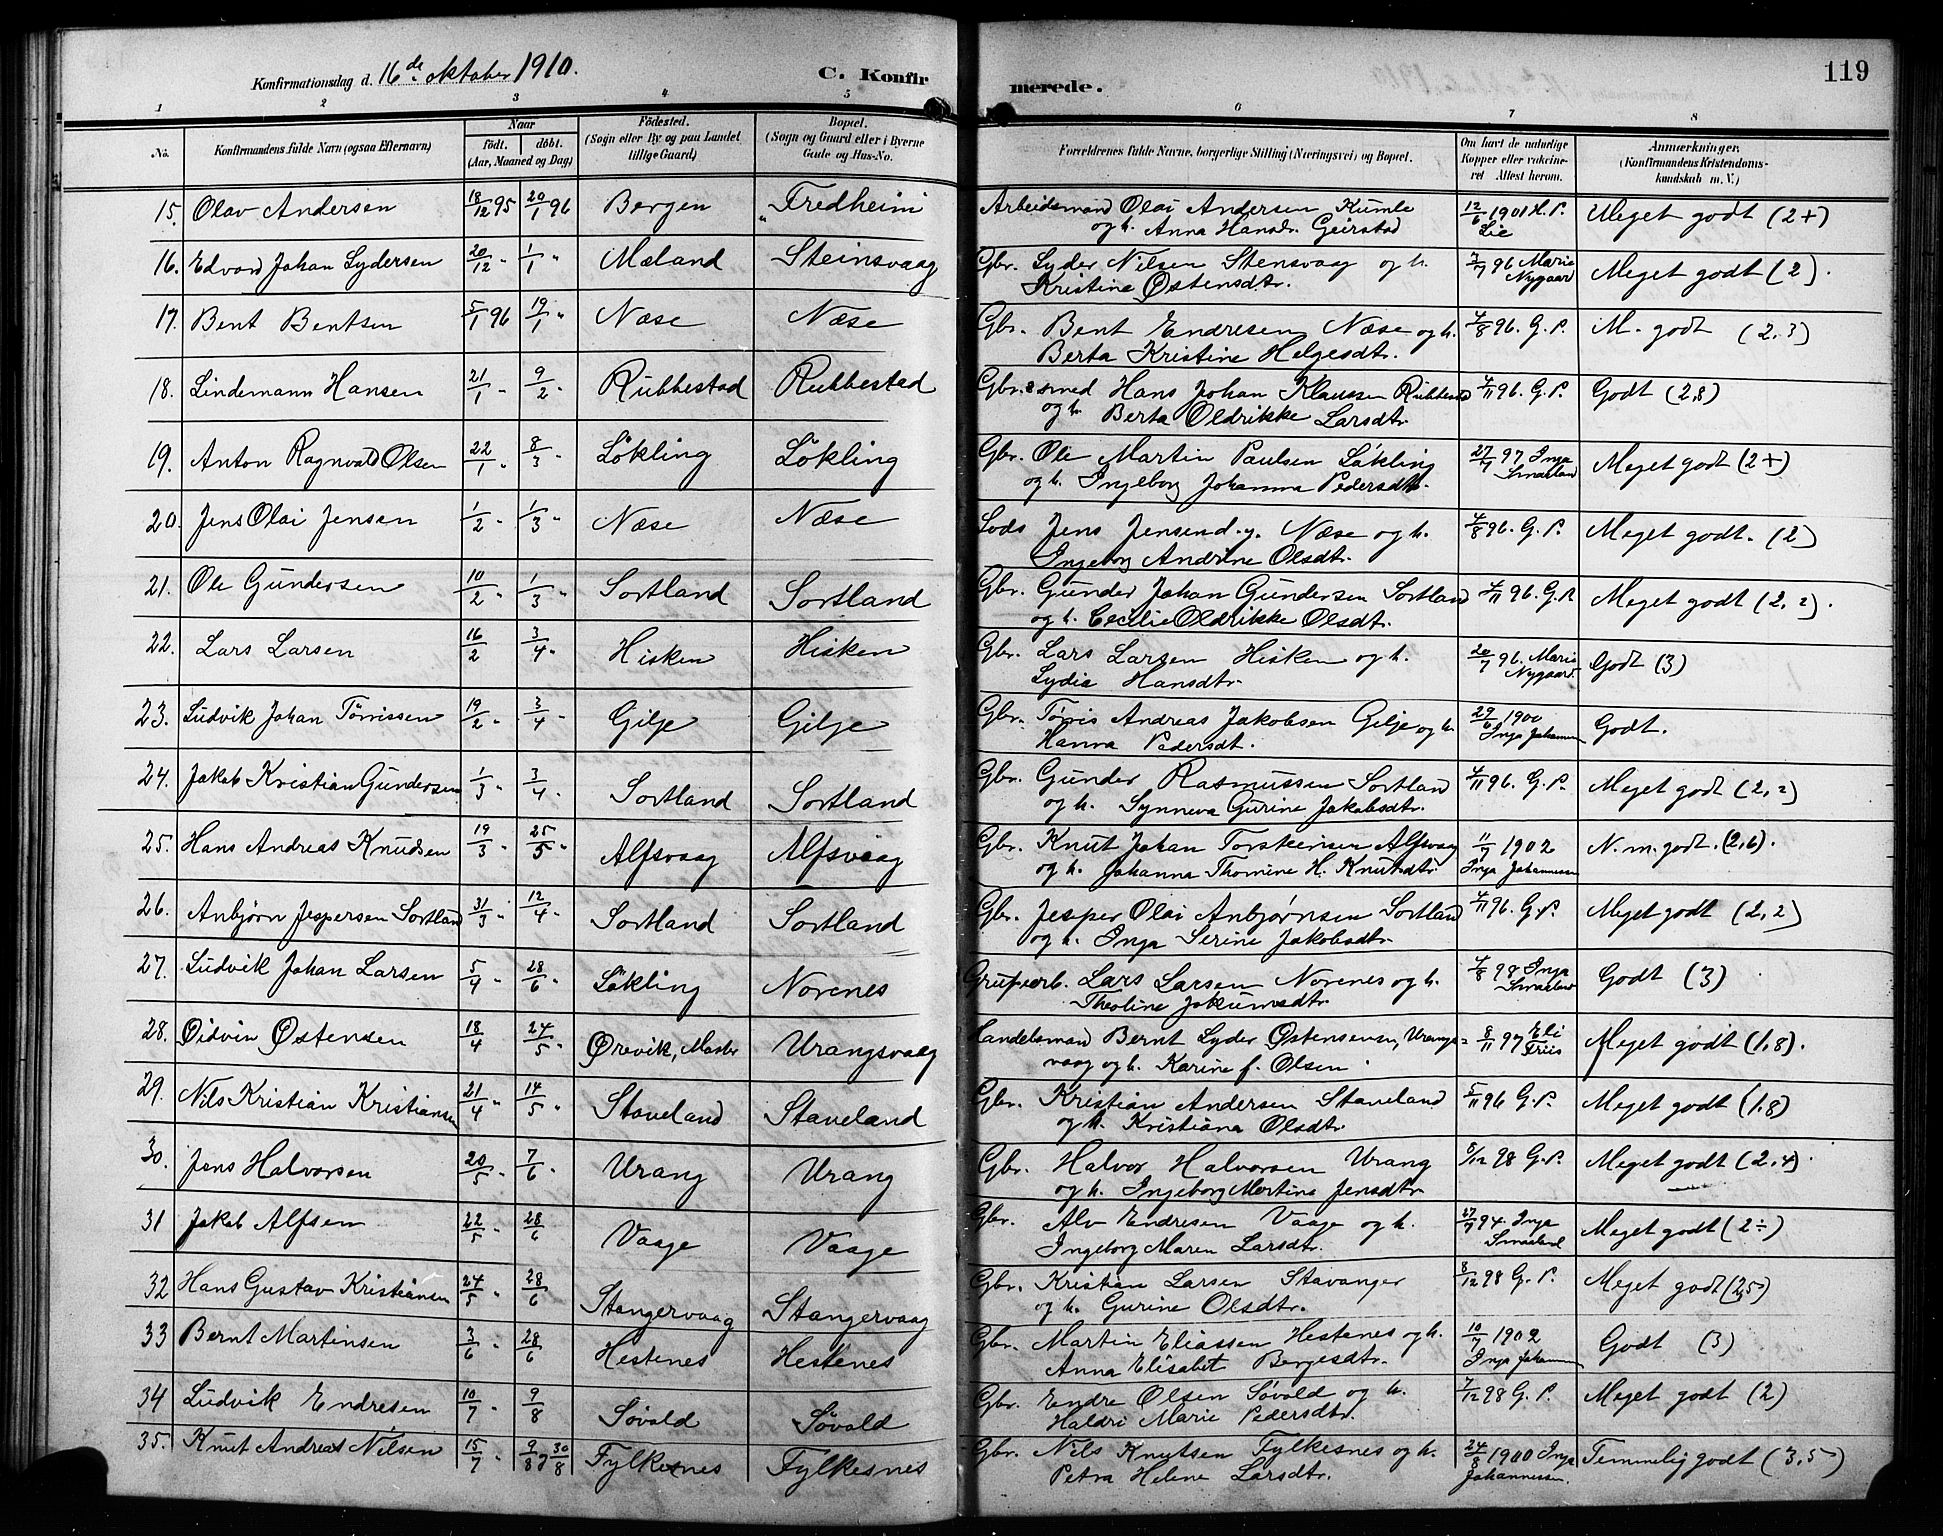 Konfirmationsdag d. 16de oktober 1910. C. Konfirmerede. 119
1 2 3 4 5 6 7 8
No. Konfirmandens fulde Navn (ogsaa Efternavn) Naar født. døbt. (Aar, Maaned og Dag) Fødested. (Sogn eller By og paa Landet tillige Gaard) Bopæl. (Sogn og Gaard eller i Byerne Gade og Hus-No. Forældrenes fulde Navne, borgerlige Stilling (Næringsvei) og Bopæl. Om havt de naturlige Kopper eller vaccineret Attest herom. Anmærkninger. (Konfirmandens Kristendomskundskab m. V.)
15. Olav Andersen 18/12 95 20/1 96 Bergen „Fredheim Arbeidsmand Olai Andersen Kumle 12/6 1901 H. P. Lie Meget godt (2+)
og h. Anna Hansdr. Geirstad
16. Edvard Johan Lydersen 20/12 „ 1/1 „ Mæland Steinsvaag Gbr. Lyder Nilsen Stensvaag og h. 7/7 96 Marie Nygaard Meget godt (2).
Kristine Østensdtr.
17. Bent Bentsen 5/1 96 19/1 „ Næse Næse Gbr. Bent Endresen Næse og h. 4/8 96. G. P. M. godt (2,3)
Berta Kristine Helgesdtr.
18. Lindemann Hansen 21/1 „ 9/2 „ Rubbestad Rubbestad Gbr & smed Hans Johan Klaussen Rubbestad 4/11 96. G. P. Godt (2,8)
og h. Berta Oldrikke Larsdtr.
19. Anton Ragnvald Olsen 22/1 „ 8/3 „ Løkling Løkling Gbr. Ole Martin Paulsen Løkling 27/7 97 Inga Smaaland Meget godt (2+)
og h. Ingeborg Johanna Pedersdtr.
20. Jens Olai Jensen 1/2 „ 1/3 „ Næse Næse Lods Jens Jensen d. y. Næse og h. 4/8 96. G. P. Meget godt. (2)
Ingeborg Andrine Olsdtr.
21. Ole Gundersen 10/2 „ 1/3 „ Sortland Sortland Gbr. Gunder Johan Gundersen Sortland 4/11 96. G. P. Meget godt (2,2).
og h. Cecilie Oldrikke Olsdtr.
22. Lars Larsen 16/2 3/4 „ Hisken Hisken Gbr. Lars Larsen Hisken og h. 20/7 96. Marie Nygaard. Godt (3)
Lydia Hansdtr.
23. Ludvik Johan Tørrissen 19/2 „ 3/4 „ Gilje Gilje Gbr. Tørris Andreas Jakobsen Gilje og h. 29/6 1900 Inga Johannessen Godt.
Hanna Pedersdt.
24. Jakob Kristian Gundersen 1/3 „ 3/4 „ Sortland Sortland Gbr. Gunder Rasmussen Sortland 4/11 96. G. P. Meget godt (2,2)
og h. Synneva Gurine Jakobsdtr.
25. Hans Andreas Knudsen 19/3 „ 25/5 „ Alfsvaag Alfsvaag Gbr. Knut Johan Torsteinsen Alfsvaag 11/7 1902 Inga Johannessen N. m. godt. (2,6).
og h. Johanna Thomine H. Knutsdtr.
26. Anbjørn Jespersen Sortland 31/3 „ 12/4 „ Sortland Sortland Gbr. Jesper Olai Anbjørnsen Sortland 4/11 96. G. P. Meget godt (2,2)
og h. Inga Serine Jakobsdtr.
27. Ludvik Johan Larsen 5/4 „ 28/6 „ Løkling Norenes Grubearb. Lars Larsen Norenes og h. 4/8 98 Inga Smaaland Godt (3)
Theoline Jokumsdtr.
28. Øidvin Østensen 18/4 24/5 „ Ørevik, Moster Urangsvaag Handelsmand Bernt Lyder Østensen, Urangs= 8/11 97 Eli Friis Meget godt (1,8).
vaag og h. Karine f. Olsen
29. Nils Kristian Kristiansen 21/4 „ 14/5 „ Staveland Staveland Gbr. Kristian Andersen Staveland 5/11 96 G. P. Meget godt (1,8)
og h. Kristiana Olsdtr.
30. Jens Halvorsen 20/5 „ 7/6 „ Urang Urang Gbr. Halvor Halvorsen Urang 8/12 98 G. P. Meget godt (2,4).
og h. Ingeborg Martina Jensdtr.
31 Jakob Alfsen 22/5 „ 28/6 Vaage Vaage Gbr. Alv Endresen Vaage og h. 27/7 94. Inga Smaaland Meget godt (2÷)
Ingeborg Maren Larsdtr.
32 Hans Gustav Kristiansen 24/5 „ 28/6 Stangervaag Stangervaag Gbr. Kristian Larsen Stavanger 8/12 98 G. P. Meget godt (2,5)
og h. Gurine Olsdtr.
33 Bernt Martinsen 3/6 „ 28/6 Hestenes Hestenes Gbr. Martin Eliassen Hestenes og h. 10/7 1902 Inga Johannessen Godt (3)
Anna Elisabet Bergesdtr.
34 Ludvik Endresen 10/7 „ 9/8 Søvold Søvold Gbr. Endre Olsen Søvold og h. 7/12 98 G. P. Meget godt (2)
Haldri Marie Pedersdtr.
35. Knut Andreas Nilsen 15/7 „ 9/8 og 30/8 Fylkesnes Fylkesnes Gbr. Nils Knutsen Fylkesnes og h. 24/8 1900 Inga Johannessen. Temmelig godt (3,5)
Petra Helene Larsdtr.